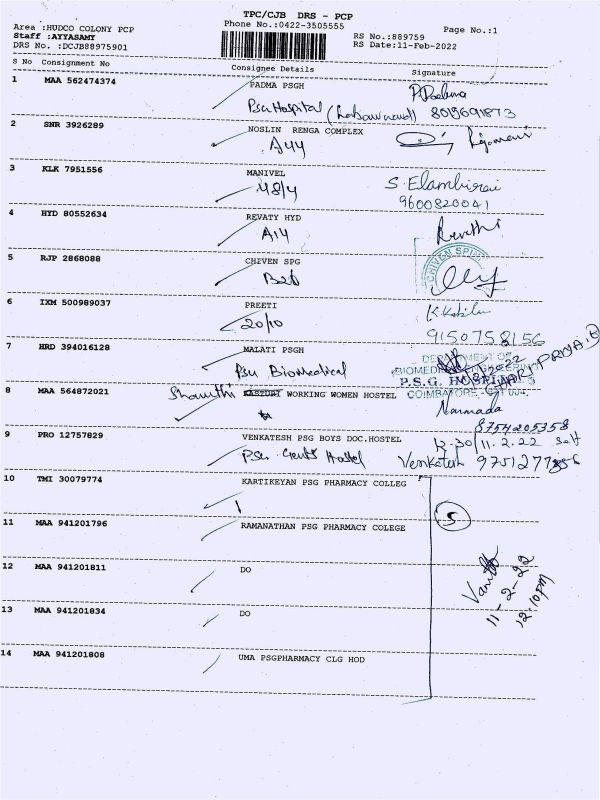 TPC/CJB DRS - PCP
Area :HUDCO COLONY PCP
Phone No.:0422-3505555
Page No.:1
Staff :AYYASAMY
RS No.:889759
DRS No. :DCJB88975901
RS Date:11-Feb-2022
S No Consignment No Consignee Details Signature
1 MAA 562474374 PADMA PSGH
Psg Hospital 8015691873
2 SNR 3926289 NOSLIN RENGA COMPLEX
A44
3 KLK 7951556 MANIVEL
48/4 S. Elambirai
9600820041
4 HYD 80552634 REVATY HYD
A14 Revathi
5 RJP 2868088 CHIVEN SPG
B26
6 IXM 500989037 PREETI
20/10
9150758156
7 HRD 394016128 MALATI PSGH
Psg Biomedical
DEPARTMENT OF
BIOMEDICAL ENGINEERING
P.S.G. HOSPITALS
COIMBATORE
8 MAA 564872021 WORKING WOMEN HOSTEL
Narmada
8754205358
9 PRO 12757829 VENKATESH PSG BOYS DOC.HOSTEL
12.30/11.2.22
Psg Gents Hostel Venkatesh
10 TMI 30079774 KARTIKEYAN PSG PHARMACY COLLEG
5
11 MAA 941201796 RAMANATHAN PSG PHARMACY COLEGE
12 MAA 941201811 DO
11-2-22
12:10PM
13 MAA 941201834 DO
14 MAA 941201808 UMA PSGPHARMACY CLG HOD